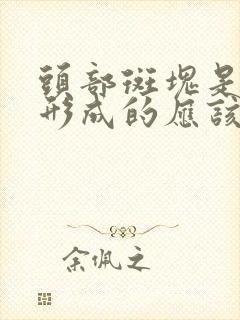 頭部斑塊是
形成的應該
余佩之